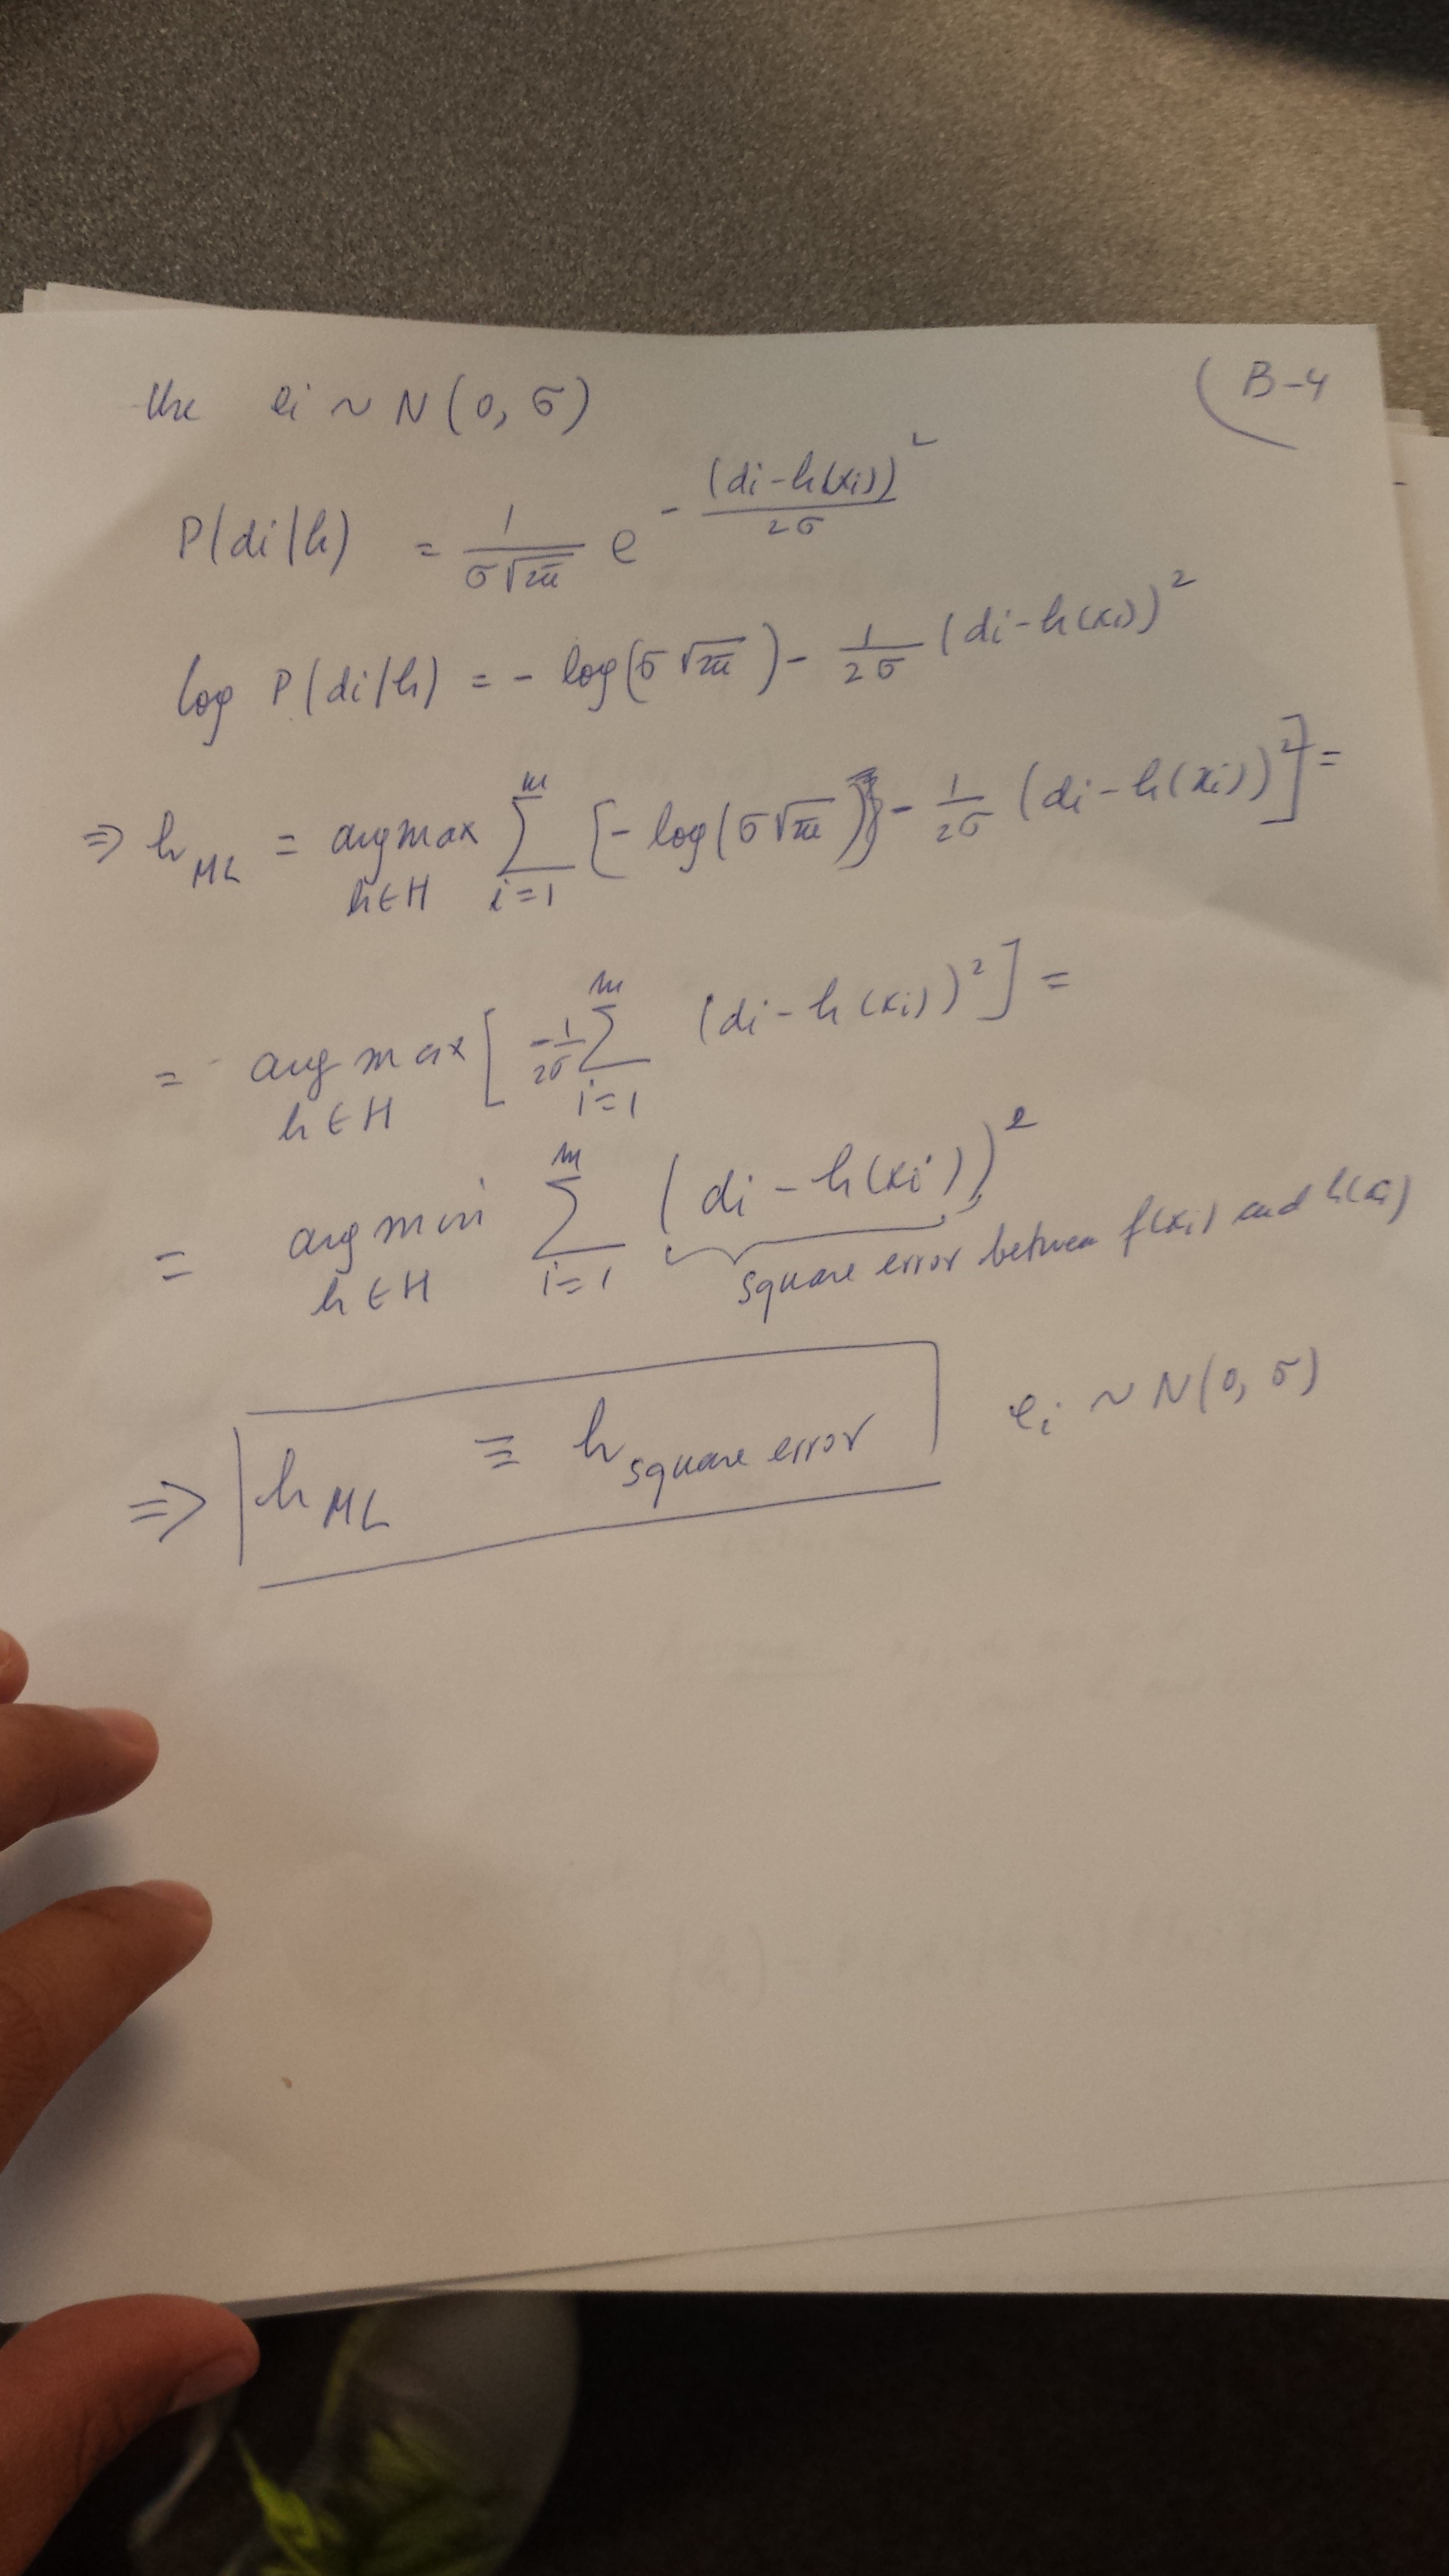 (B-4
Use ei ~ N(0, σ)
P(di/h) = 1/(σ√2π) e^-(di-h(xi))²/2σ
log P(di/h) = - log(σ√2π) - 1/2σ (di-h(xi))²
⇒ h_ML = argmax_{h∈H} ∑_{i=1}^{m} [- log(σ√2π) - 1/2σ (di-h(xi))²] =
= argmax_{h∈H} [-1/2σ ∑_{i=1}^{m} (di-h(xi))²] =
= argmin_{h∈H} ∑_{i=1}^{m} (di-h(xi))²
square error between f(xi) and h(xi)
⇒ h_ML ≡ h_square error   ei ~ N(0, σ)